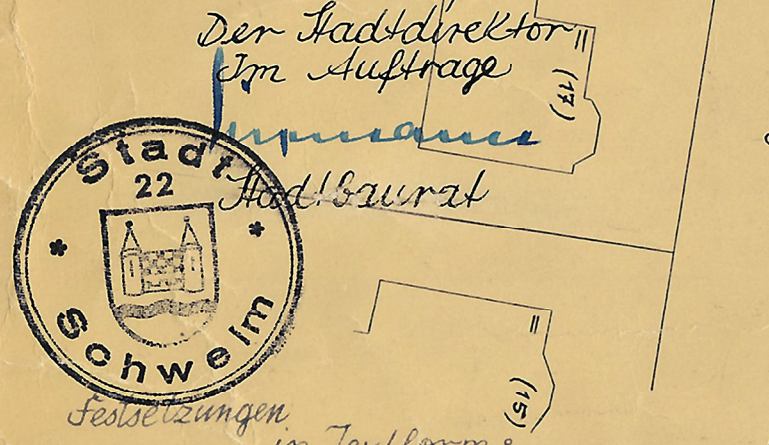 Der Stadtdirektor
Im Auftrage
Stadtbaurat
Stadt
22
* *
Schwelm
II
(17)
=
(15)
Festsetzungen
in Textform: